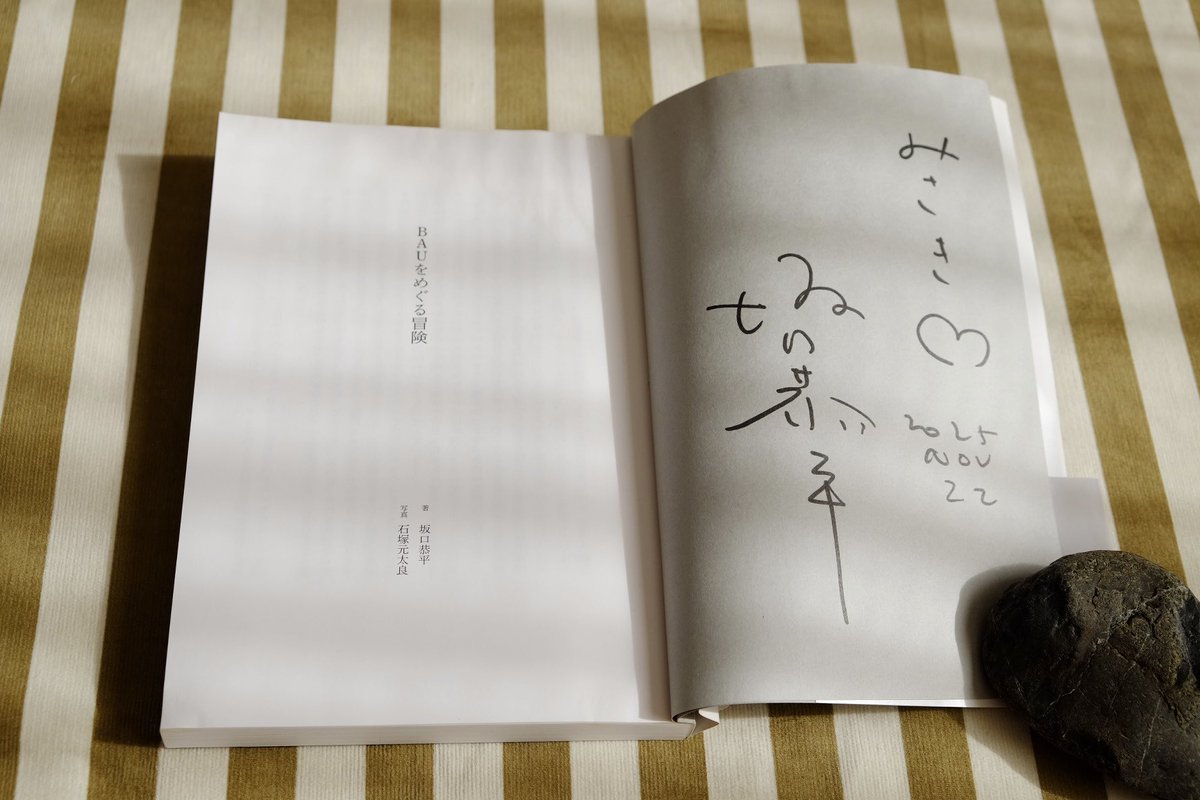 みさき
2025
NOV
22
坂口恭平
BAUをめぐる冒険
著 坂口恭平
写真 石塚元太良